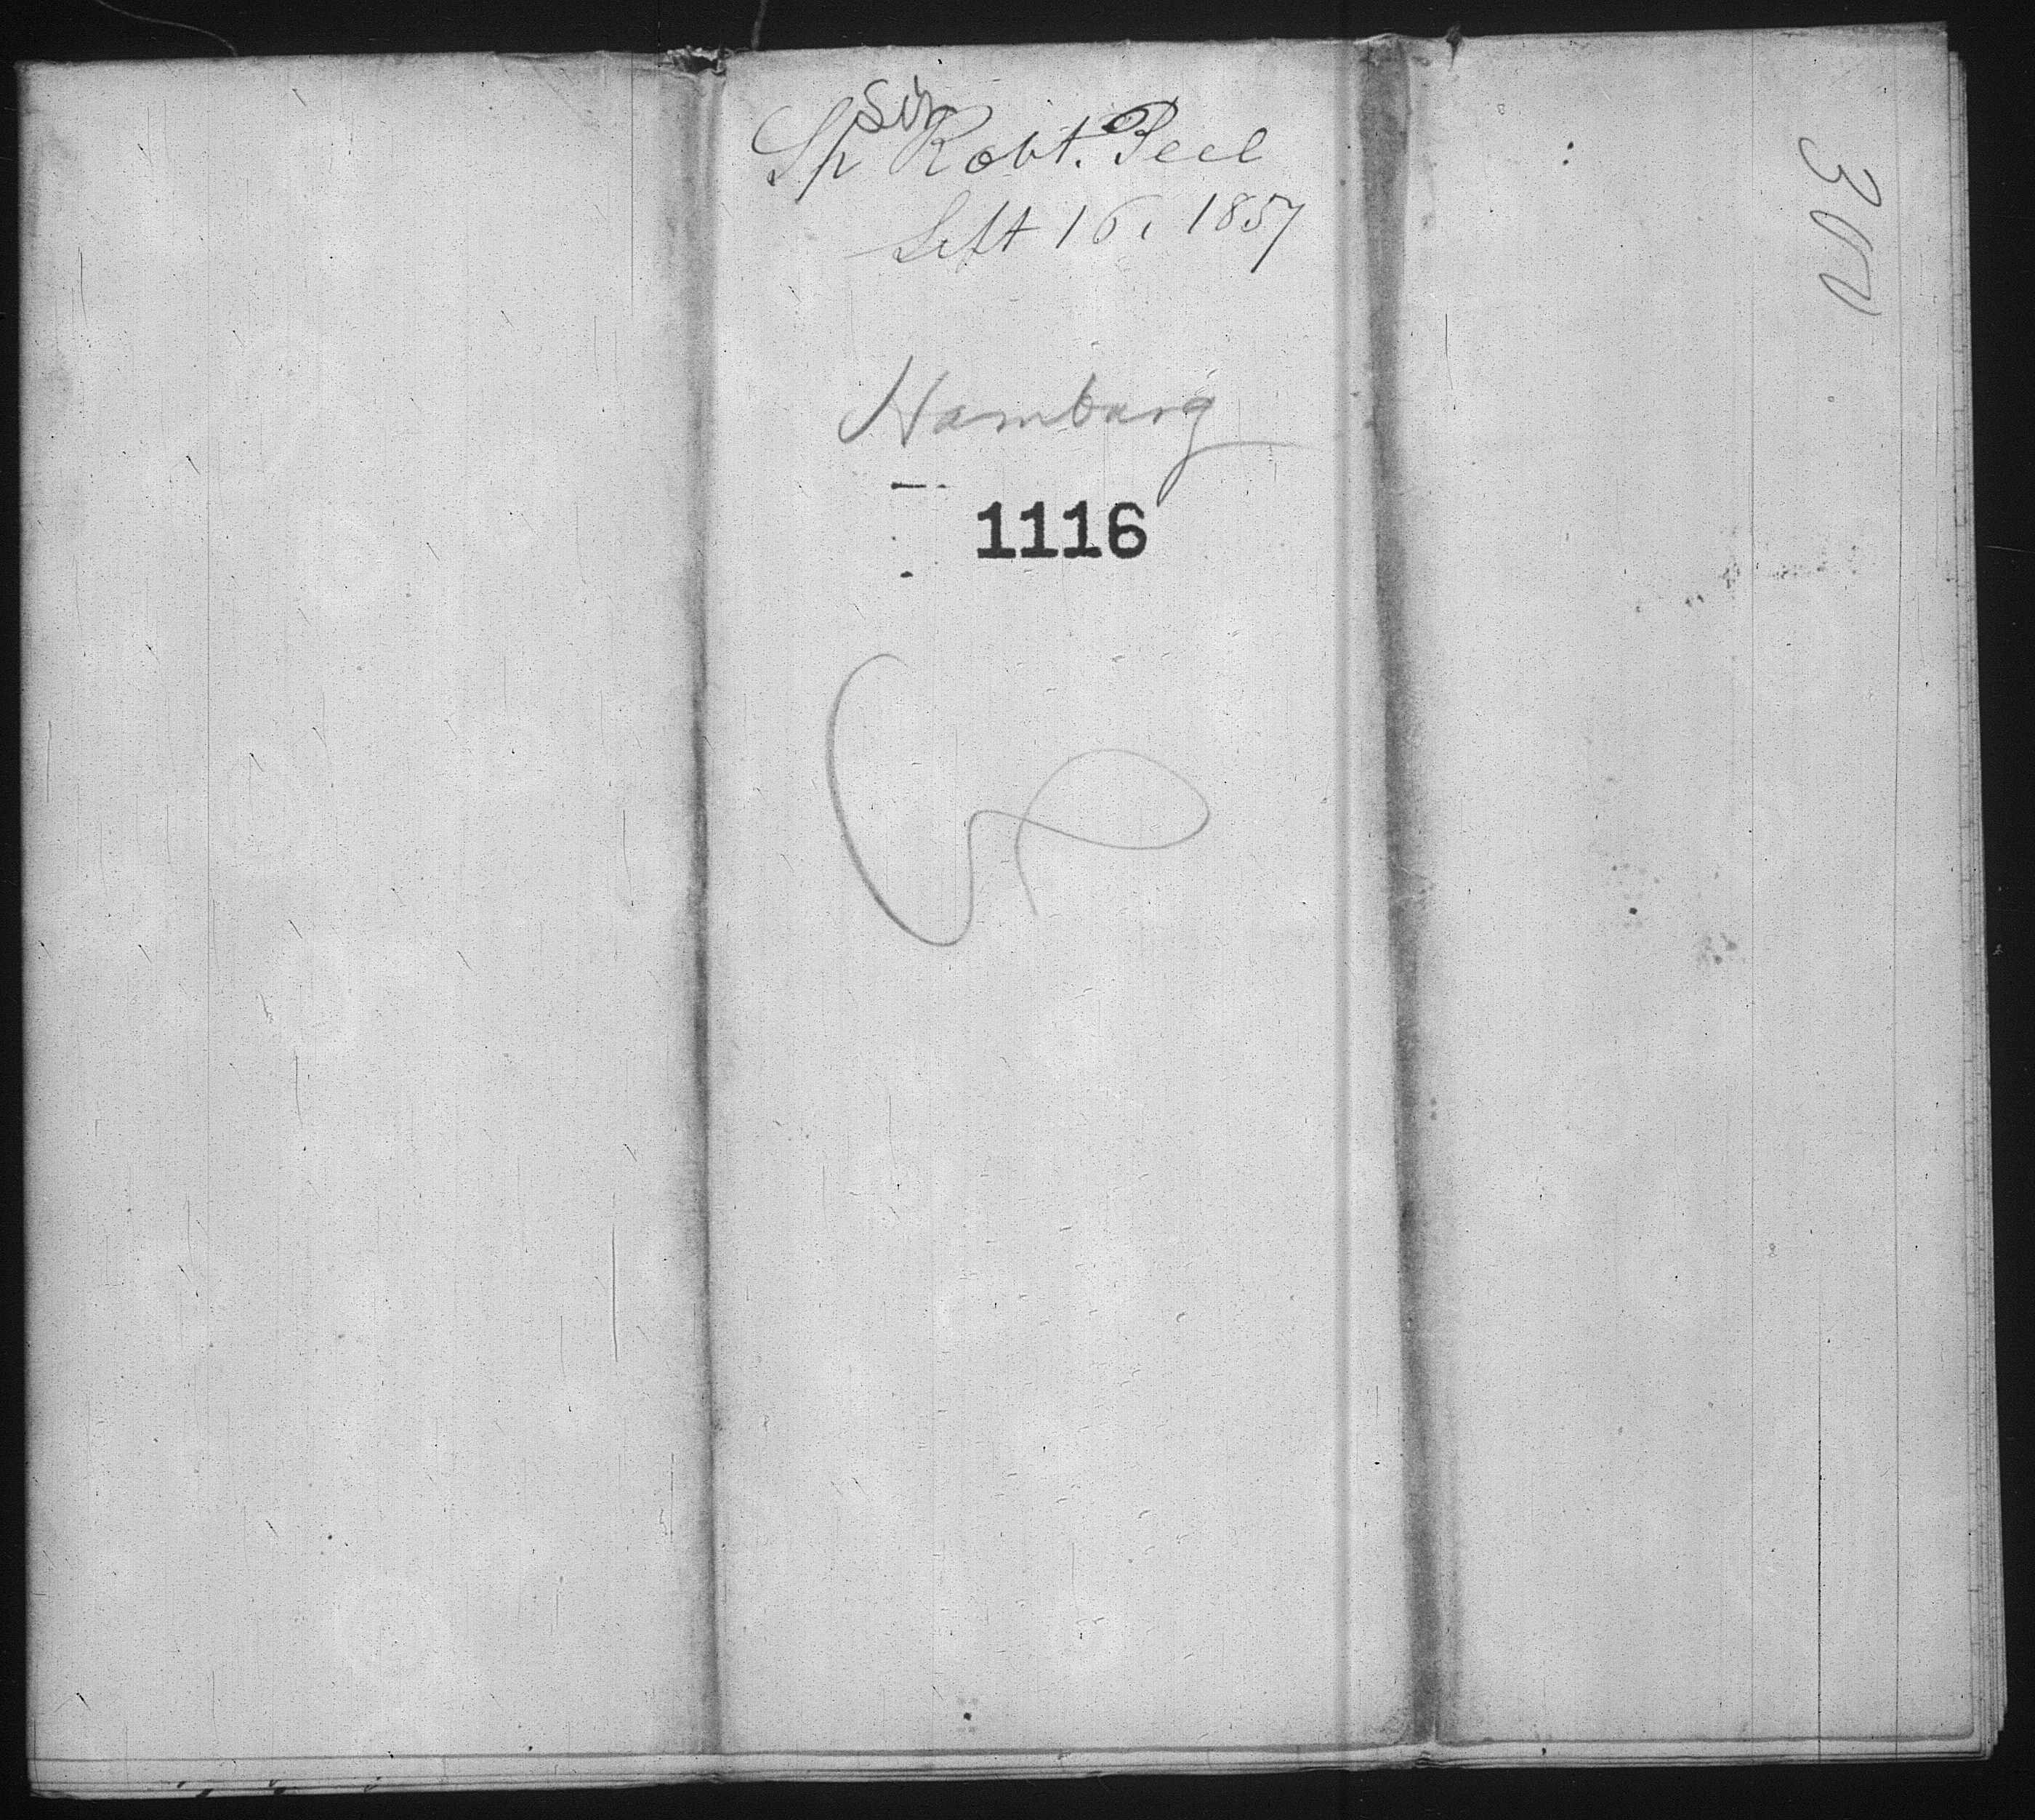 Sp Sir Robt. Peel
Sept 16, 1857
Hamburg
1116
300